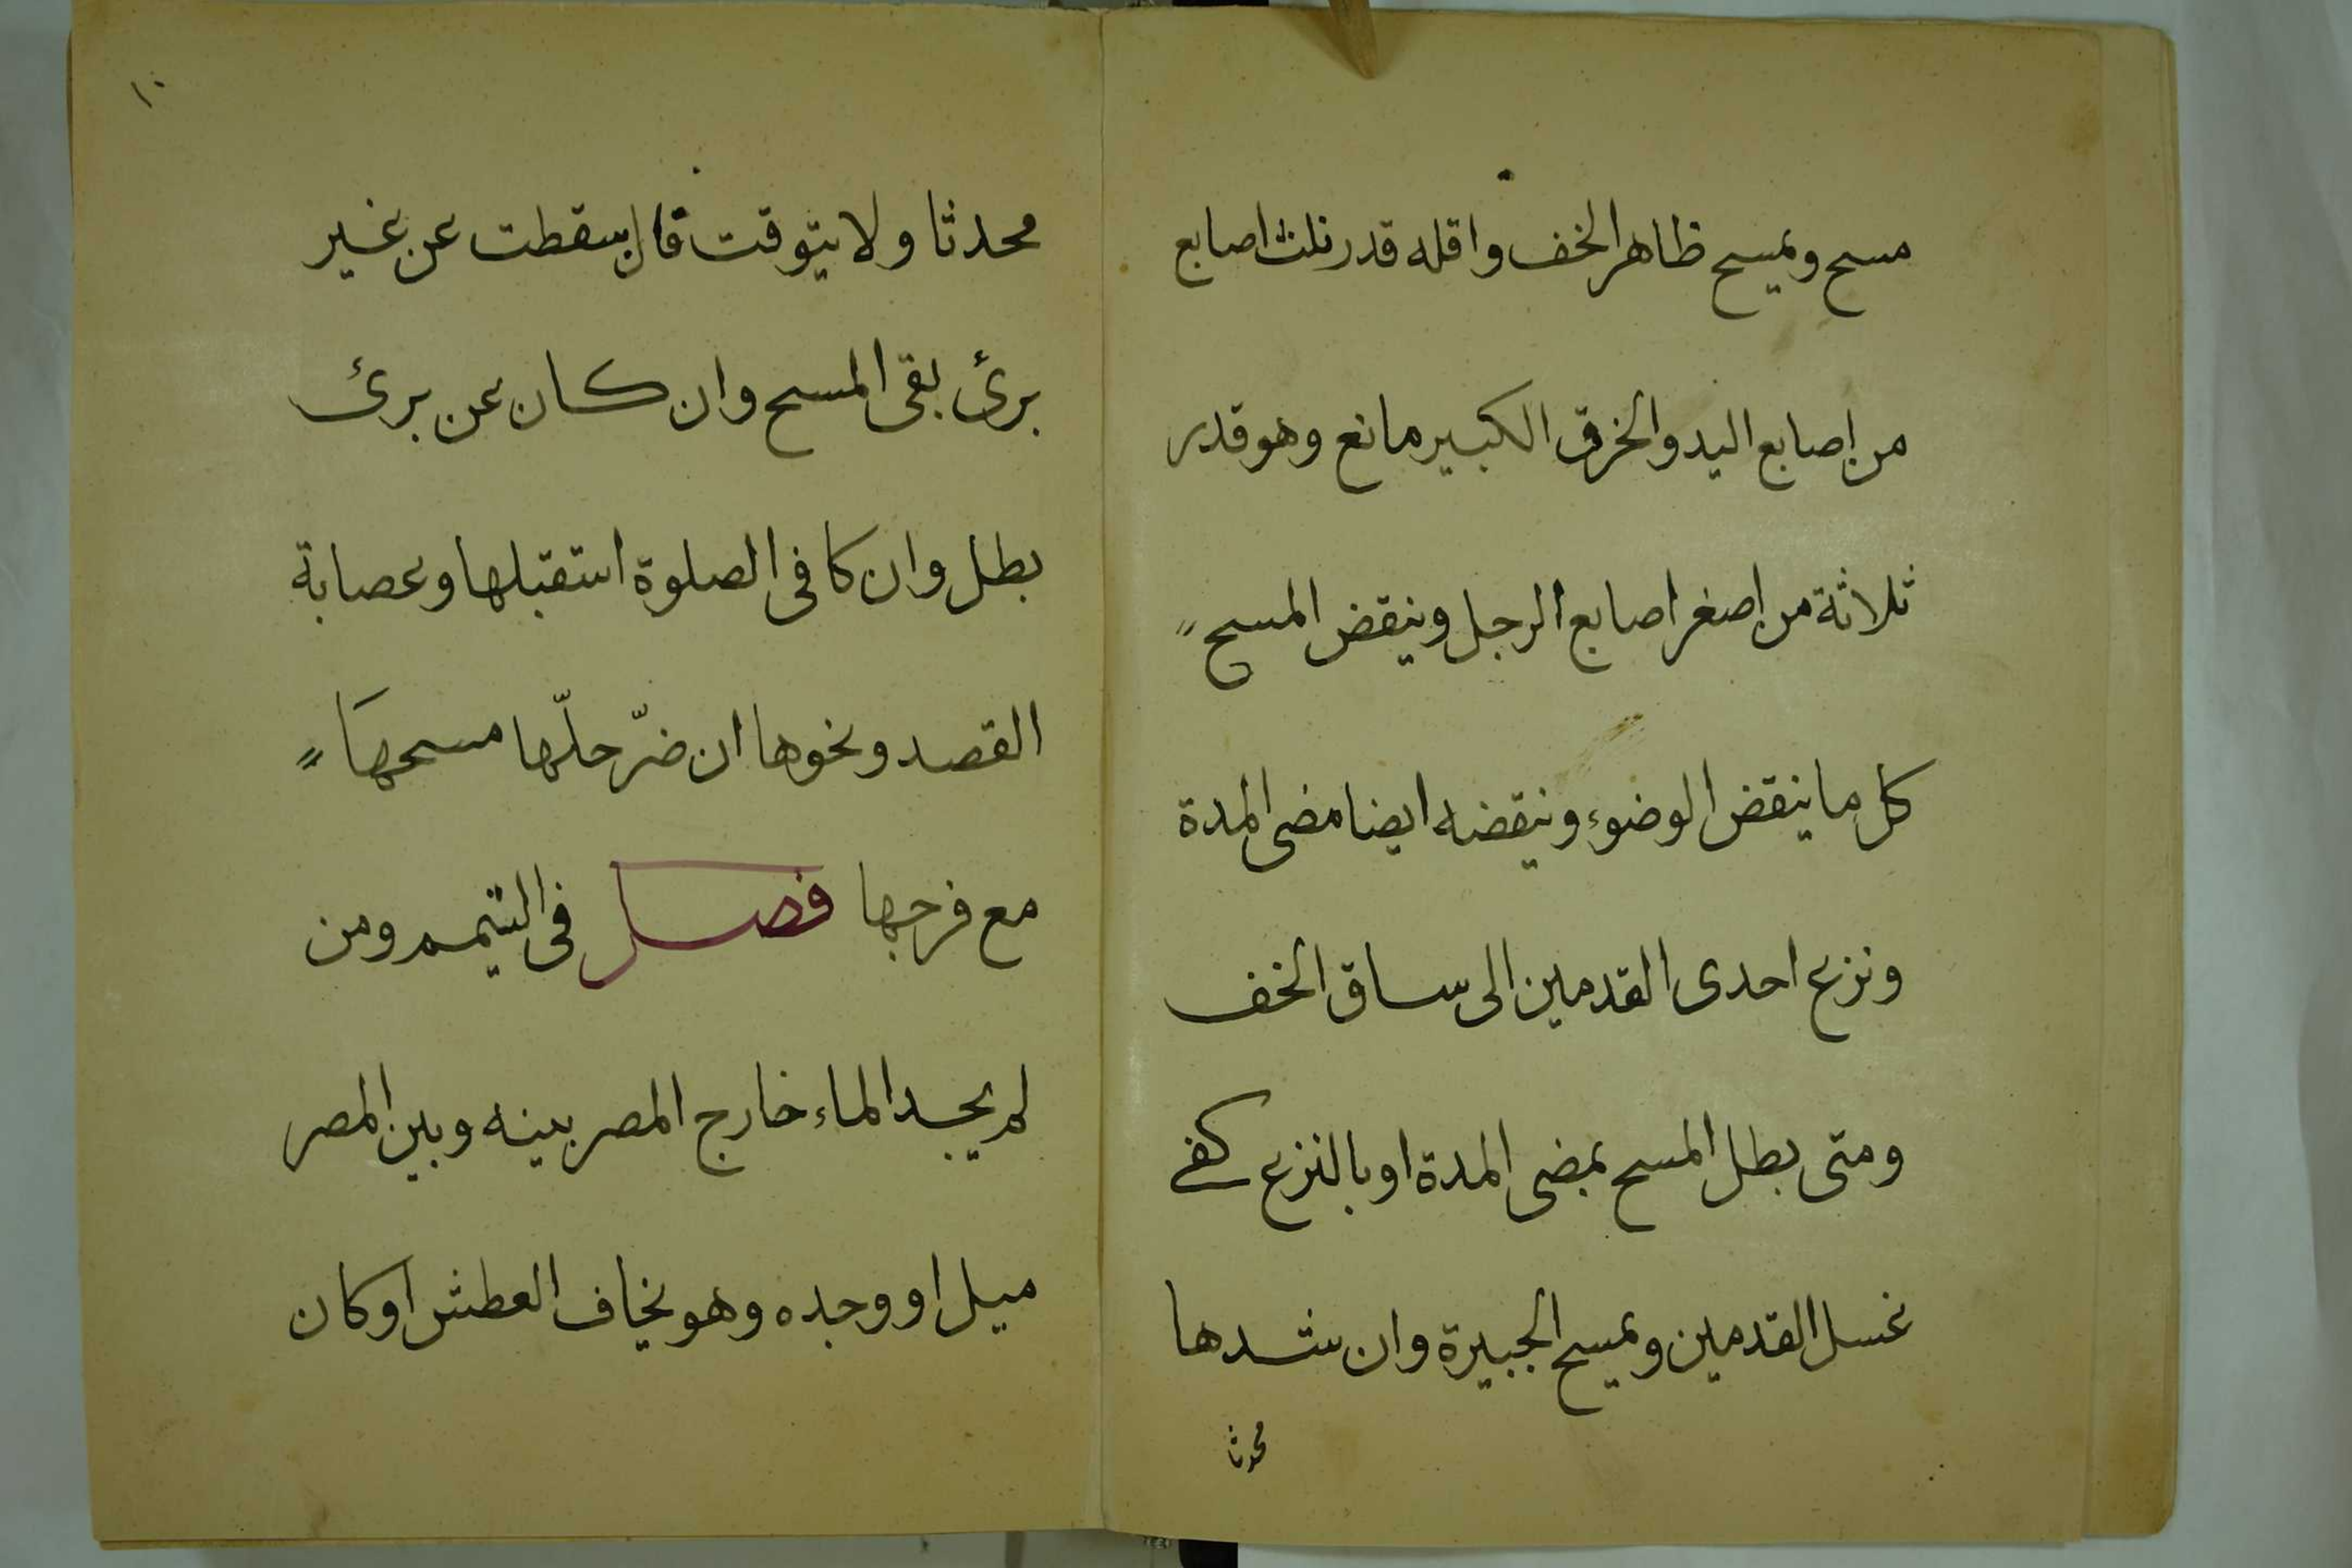 مسح ويمسح ظاهر الخف واقله قدر ثلث اصابع
من اصابع اليد والخرق الكبير مانع وهو قدر
ثلاثة من اصغر اصابع الرجل وينقض المسح
كل ما ينقض الوضوء وينقضه ايضا مضى المدة
ونزع احدى القدمين الى ساق الخف
ومتى بطل المسح بمضى المدة او بالنزع كفى
غسل القدمين ويمسح الجبيرة وان شدها
محدثا
١٠
محدثا ولا يتوقت فان سقطت عن غير
برئ بقى المسح وان كان عن برئ
بطل وان كا فى الصلوة استقبلها وعصابة
القصد ونحوها ان ضرّ حلّها مسحهَا
مع فرجها فصل فى التيمم ومن
لم يجد الماء خارج المصر بينه وبين المصر
ميل او وجده وهو يخاف العطش او كان